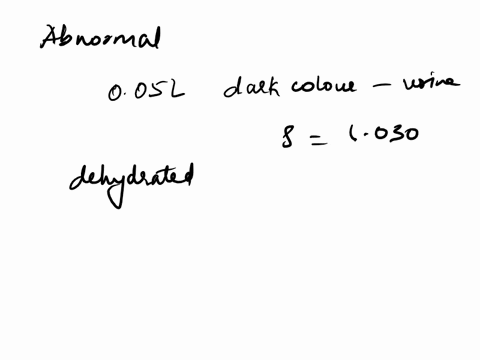 Abnormal
0.05L dark colour - urine
S = 1.030
dehydrated